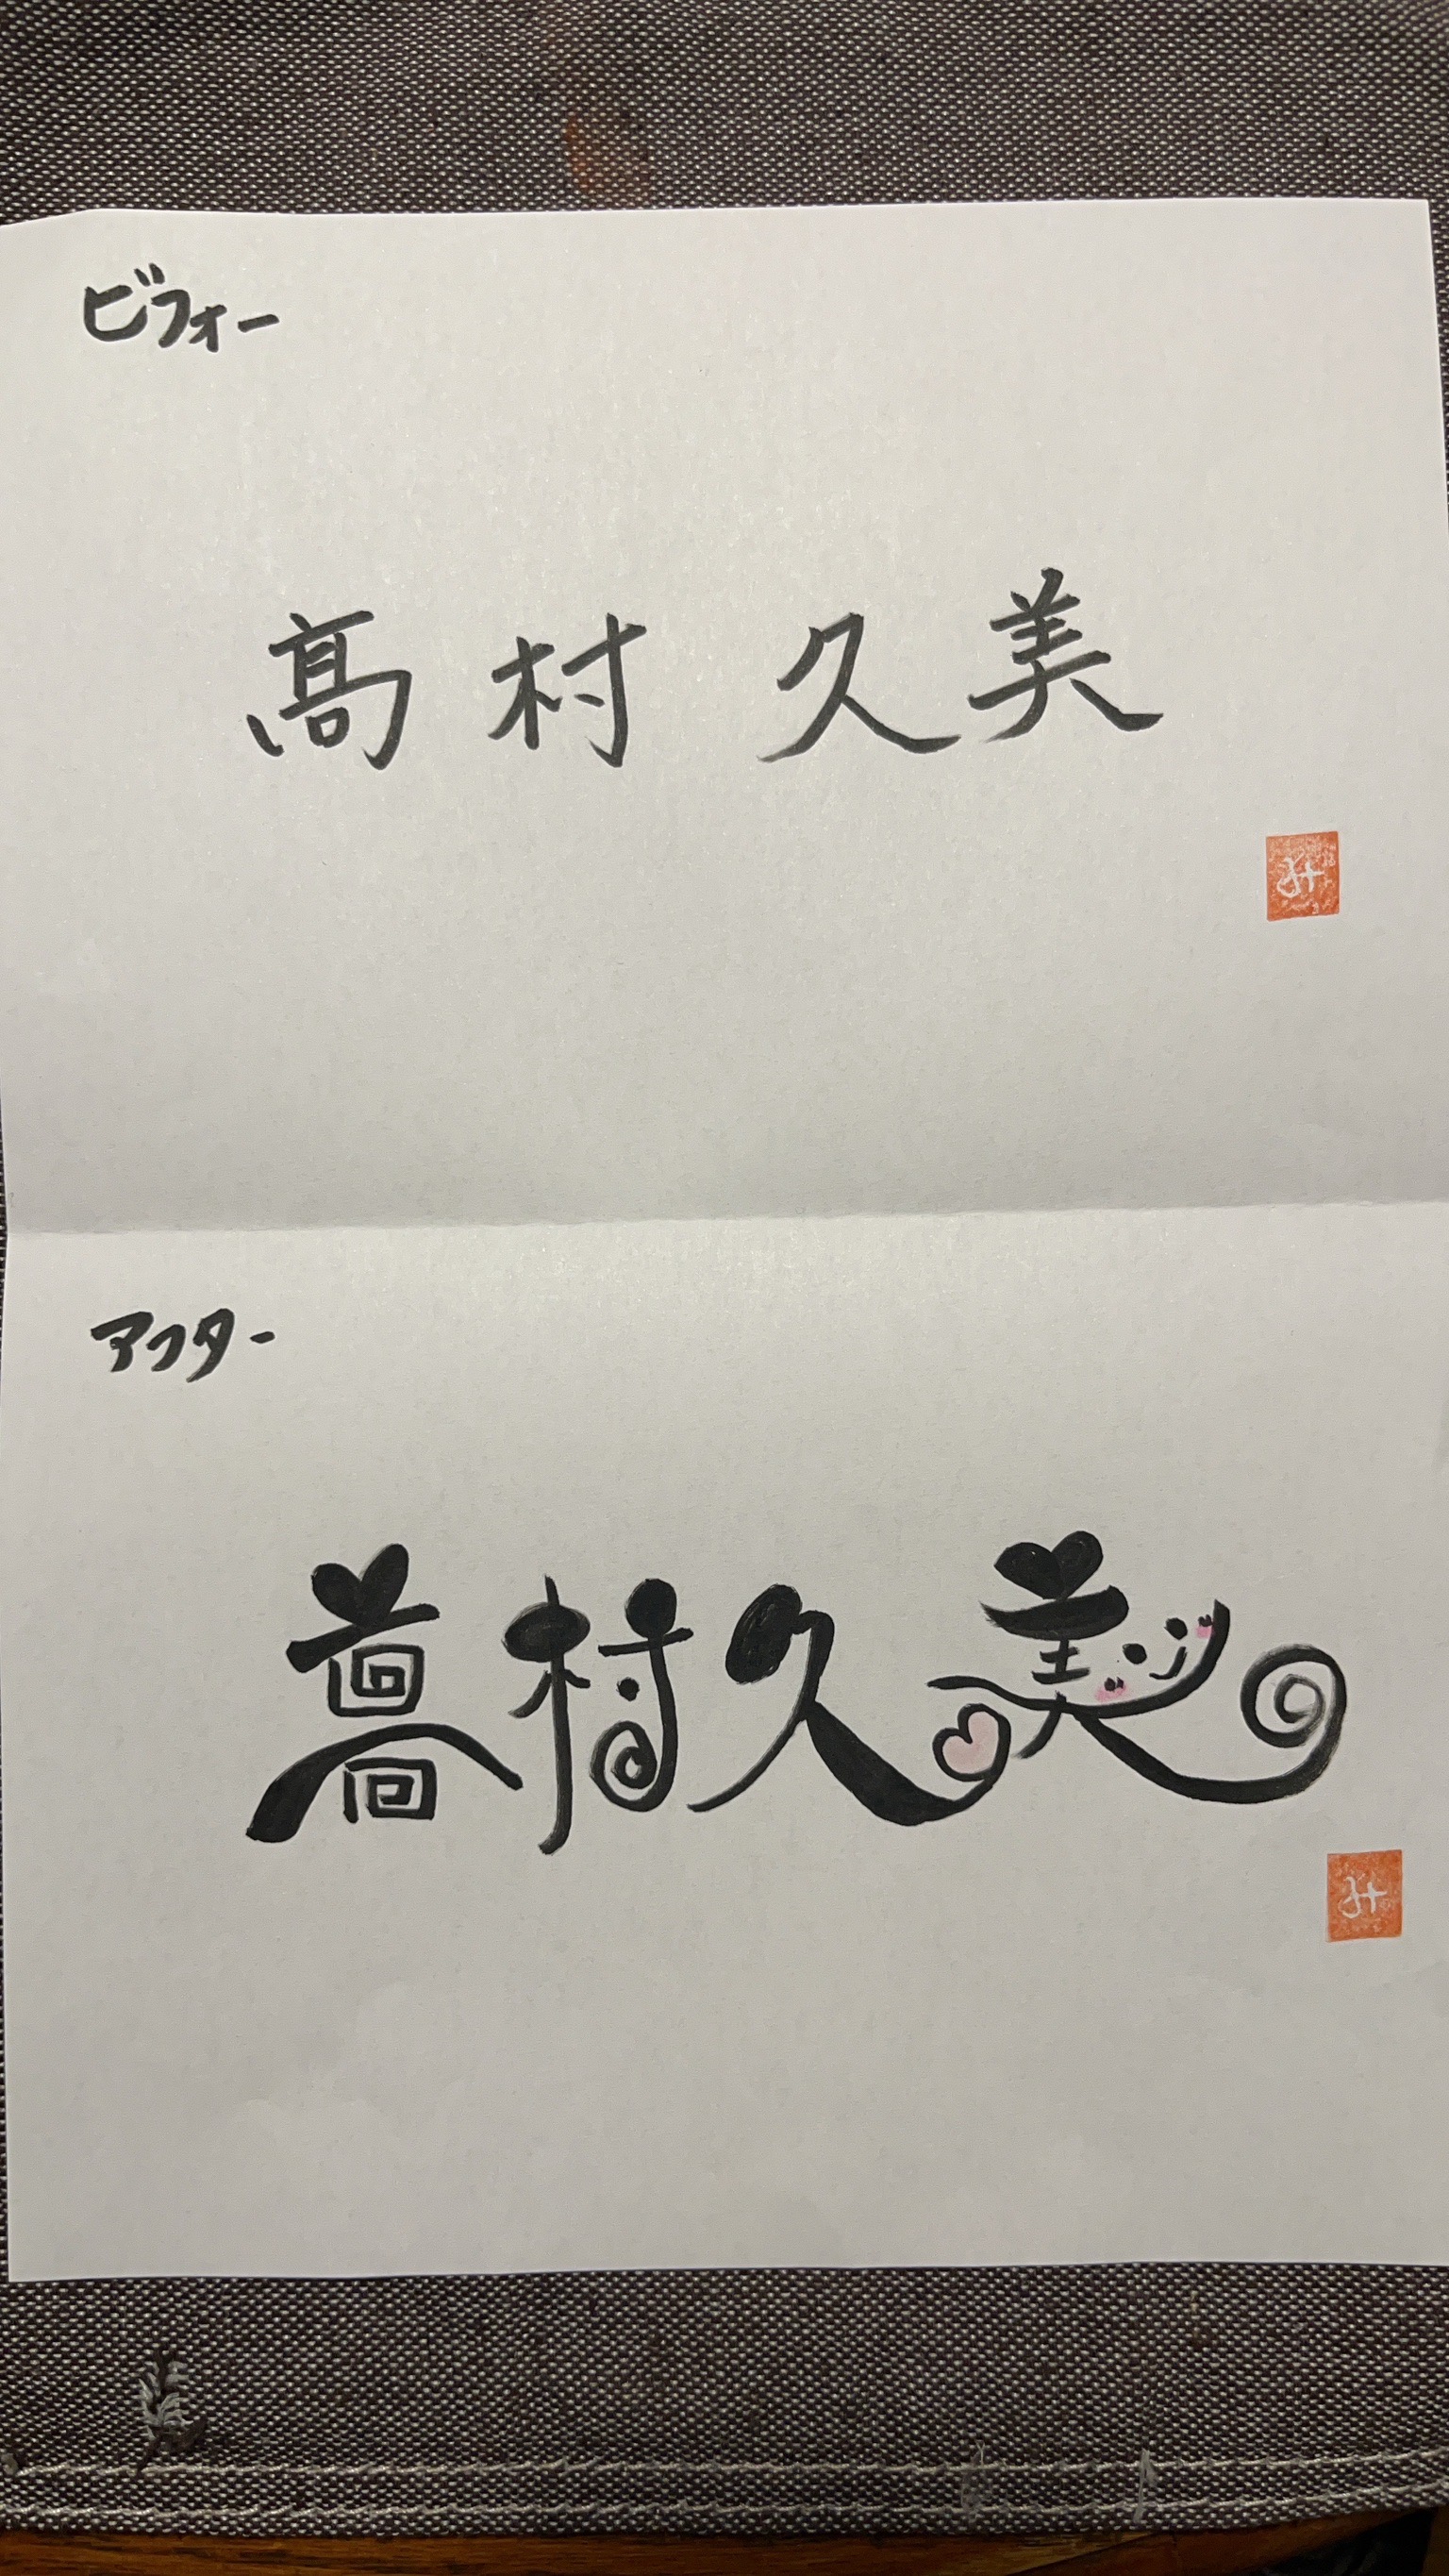 ビフォー
髙村 久美
み
アフター
髙村久美
み